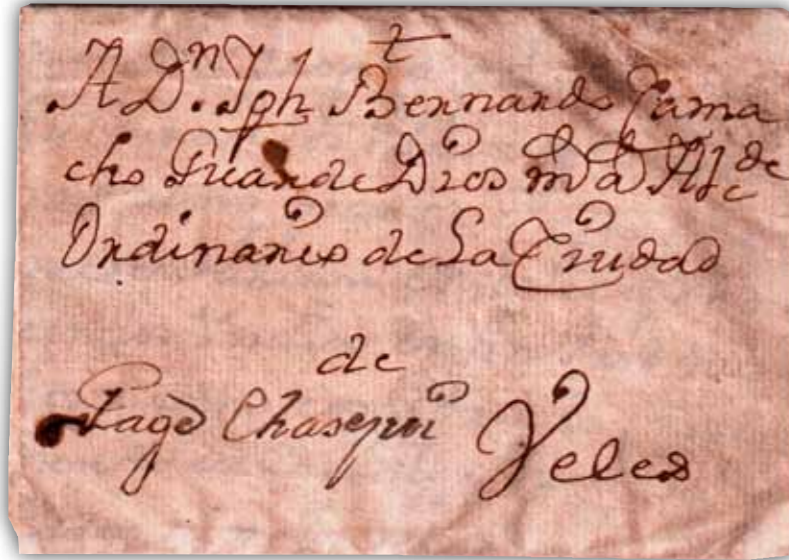 †
A Dn. Jph Bernardo Cama
cho Guarde Dios ms as Alcde
Ordinario de La Ciudad
de
Pagò Chasqui Veles